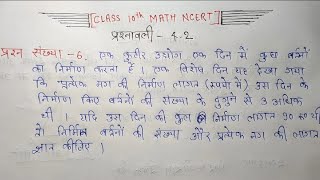 CLASS 10th MATH NCERT
प्रश्नावली - 4.2
प्रश्न संख्या - 6. एक कुटीर उद्योग एक दिन में कुछ बर्तनों
का निर्माण करता है । एक विशेष दिन यह देखा गया
कि प्रत्येक नग की निर्माण लागत (रुपयों में) उस दिन के
निर्माण किए बर्तनों की संख्या के दुगुने से 3 अधिक
थी । यदि उस दिन की कुल निर्माण लागत 90 रू थी
तो निर्मित बर्तनों की संख्या और प्रत्येक नग की लागत
ज्ञात कीजिए ।